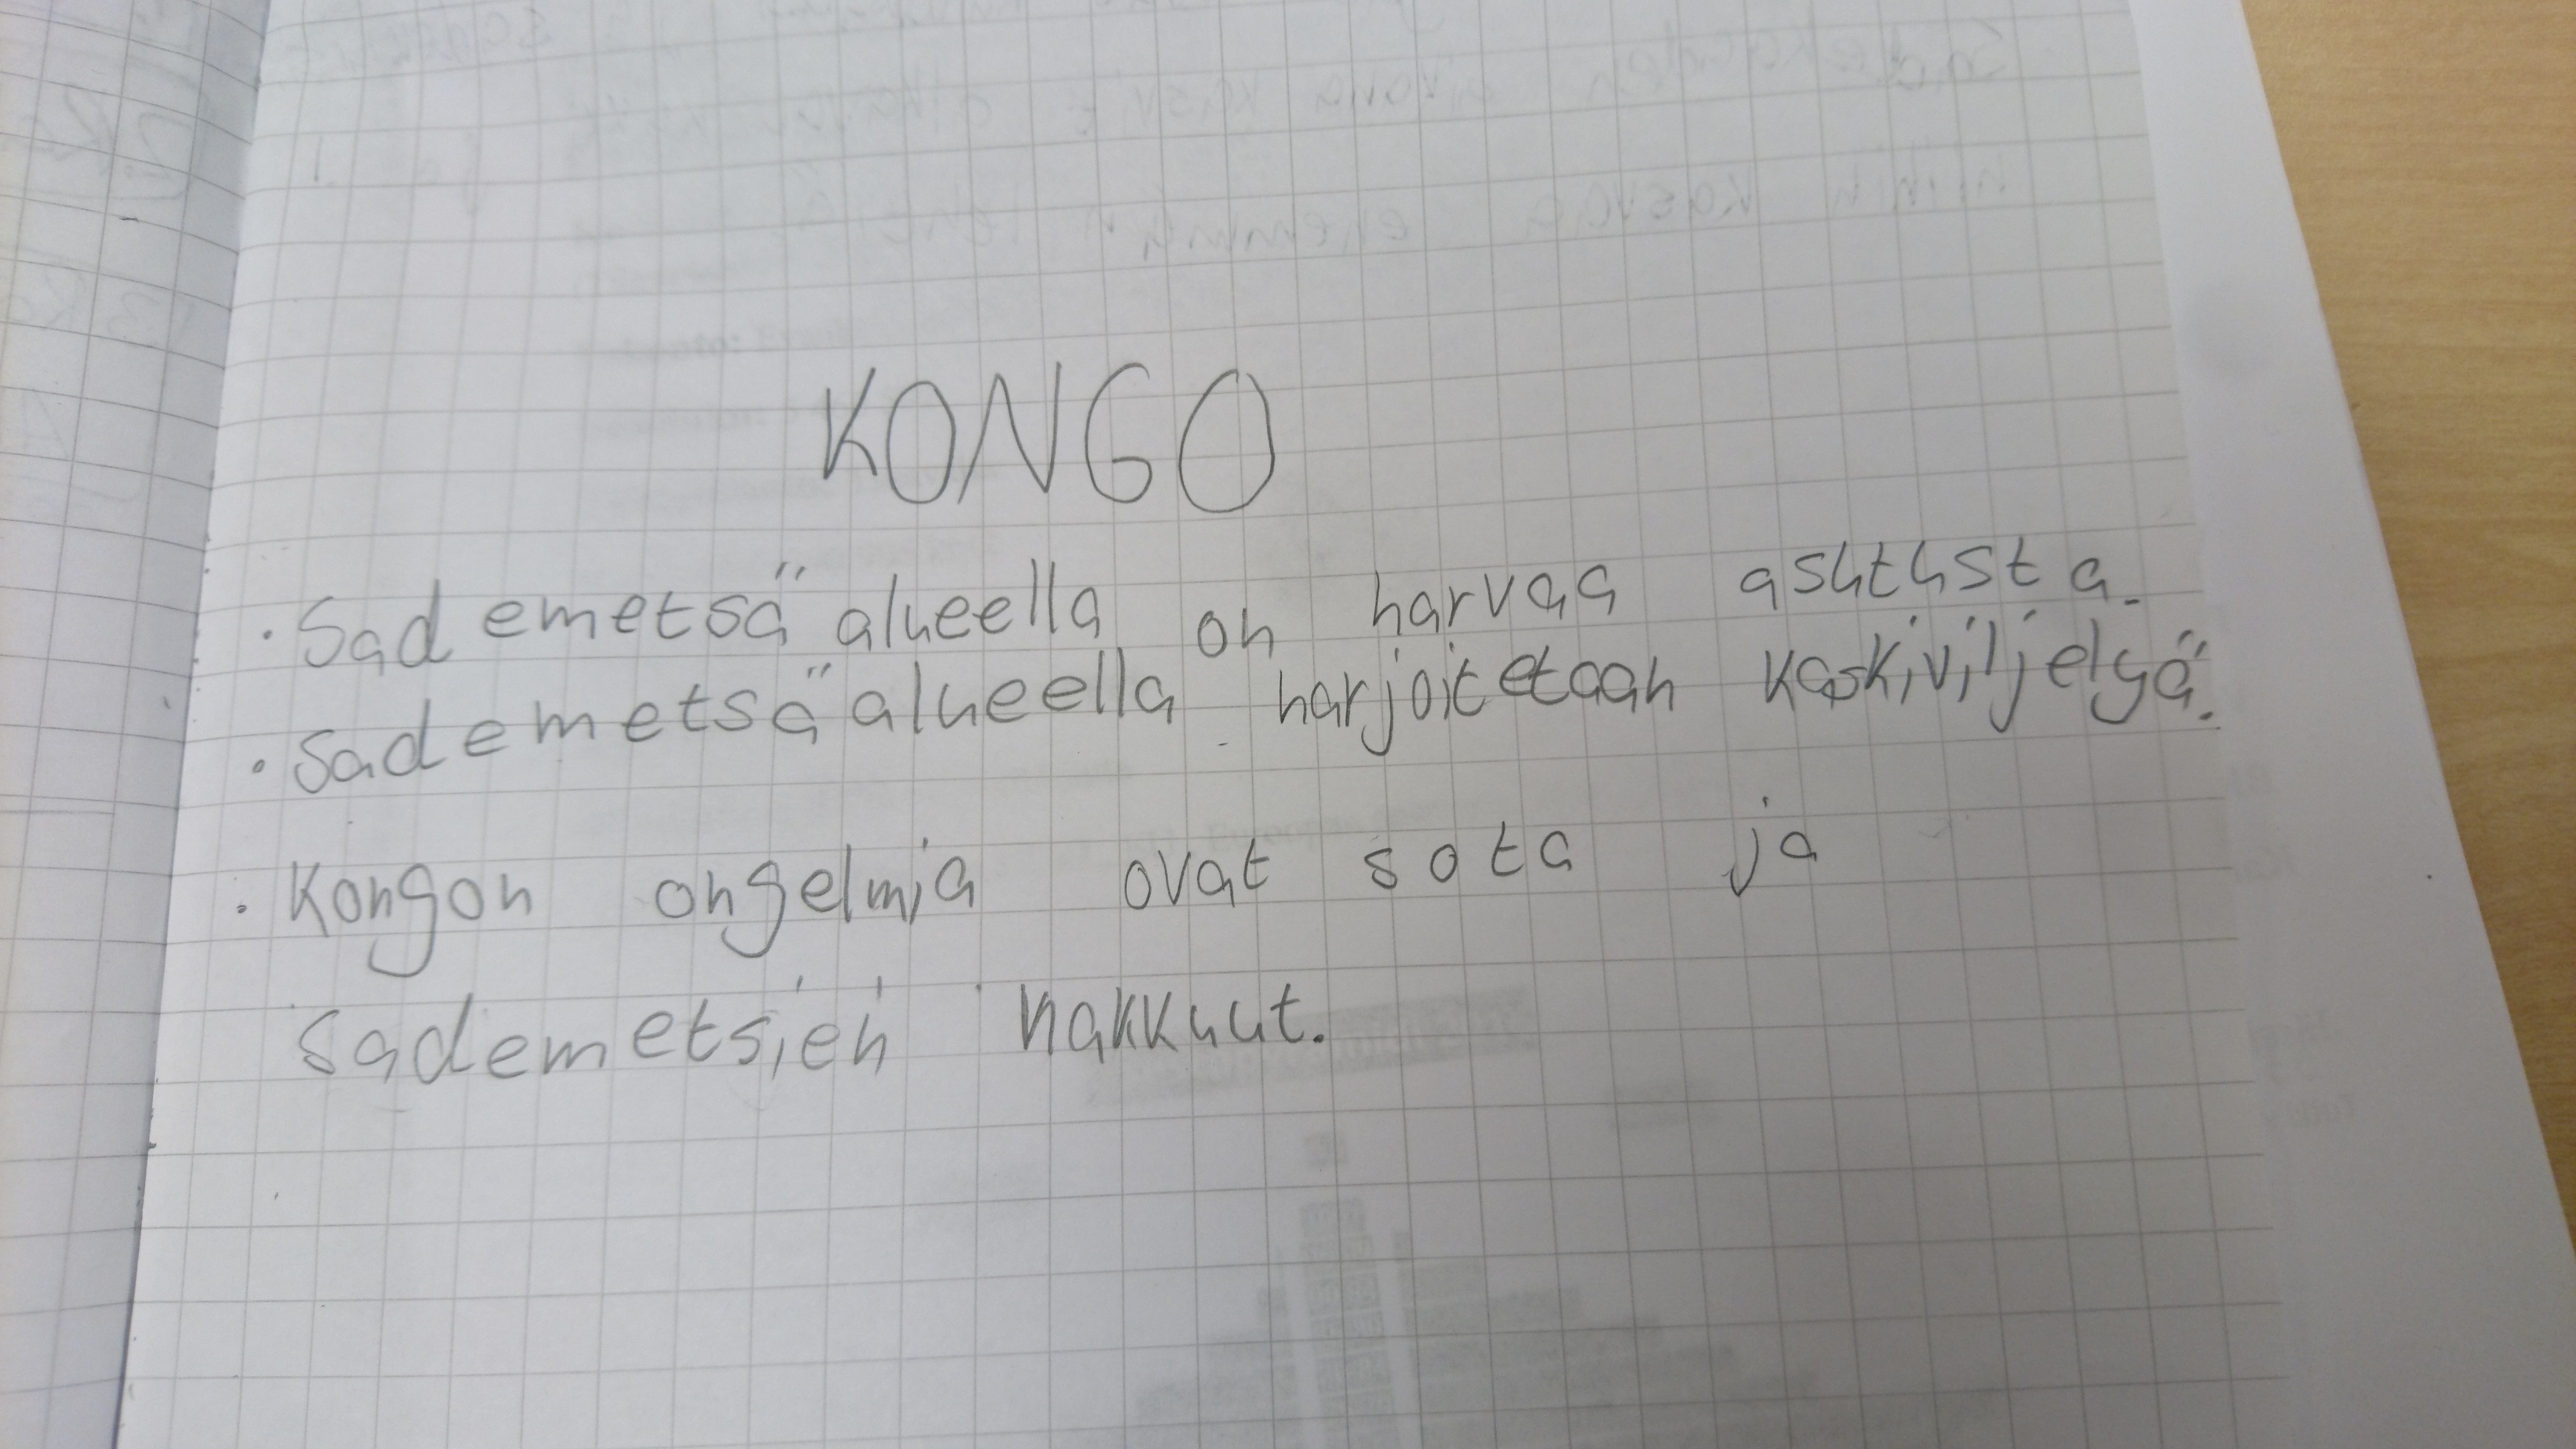 KONGO
· Sademetsäalueella on harvaa asutusta.
· Sademetsäalueella harjoitetaan kaskiviljelyä.
· Kongon ongelmia ovat sota ja
sademetsien hakkuut.